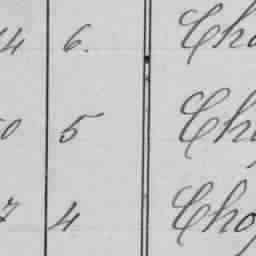 14 6. Cho
0 5 Cho
7 4 Cho